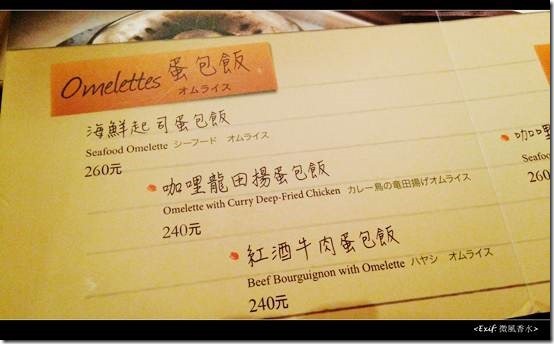 Omelettes 蛋包飯
オムライス
海鮮起司蛋包飯
Seafood Omelette シーフード オムライス
260元
咖哩龍田揚蛋包飯
Omelette with Curry Deep-Fried Chicken カレー鳥の竜田揚げオムライス
240元
紅酒牛肉蛋包飯
Beef Bourguignon with Omelette ハヤシ オムライス
240元
咖哩
Seafo
260
<Exif: 微風香水>